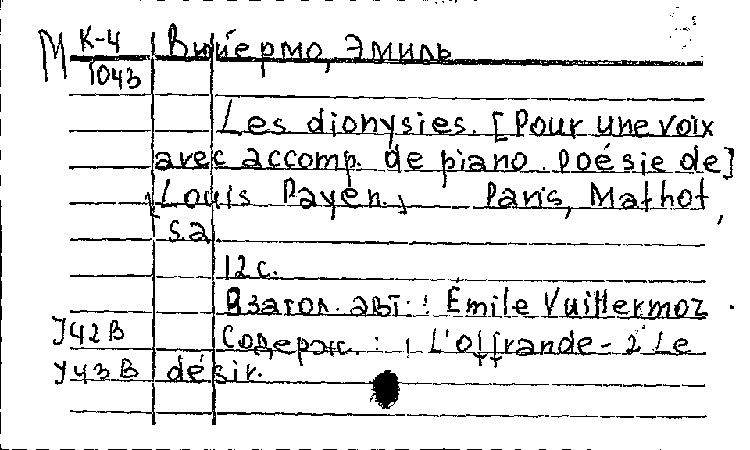 М К-4 Вийермо, Эмиль
1043
Les dionysies. [Pour une voix
avec accomp. de piano. Poésie de]
[Louis Payen.] Paris, Mathot,
s.a.
12 с.
В загол. авт.: Émile Vuillermoz.
У42В Содерж.: 1 L'offrande - 2 Le
У43В désir.